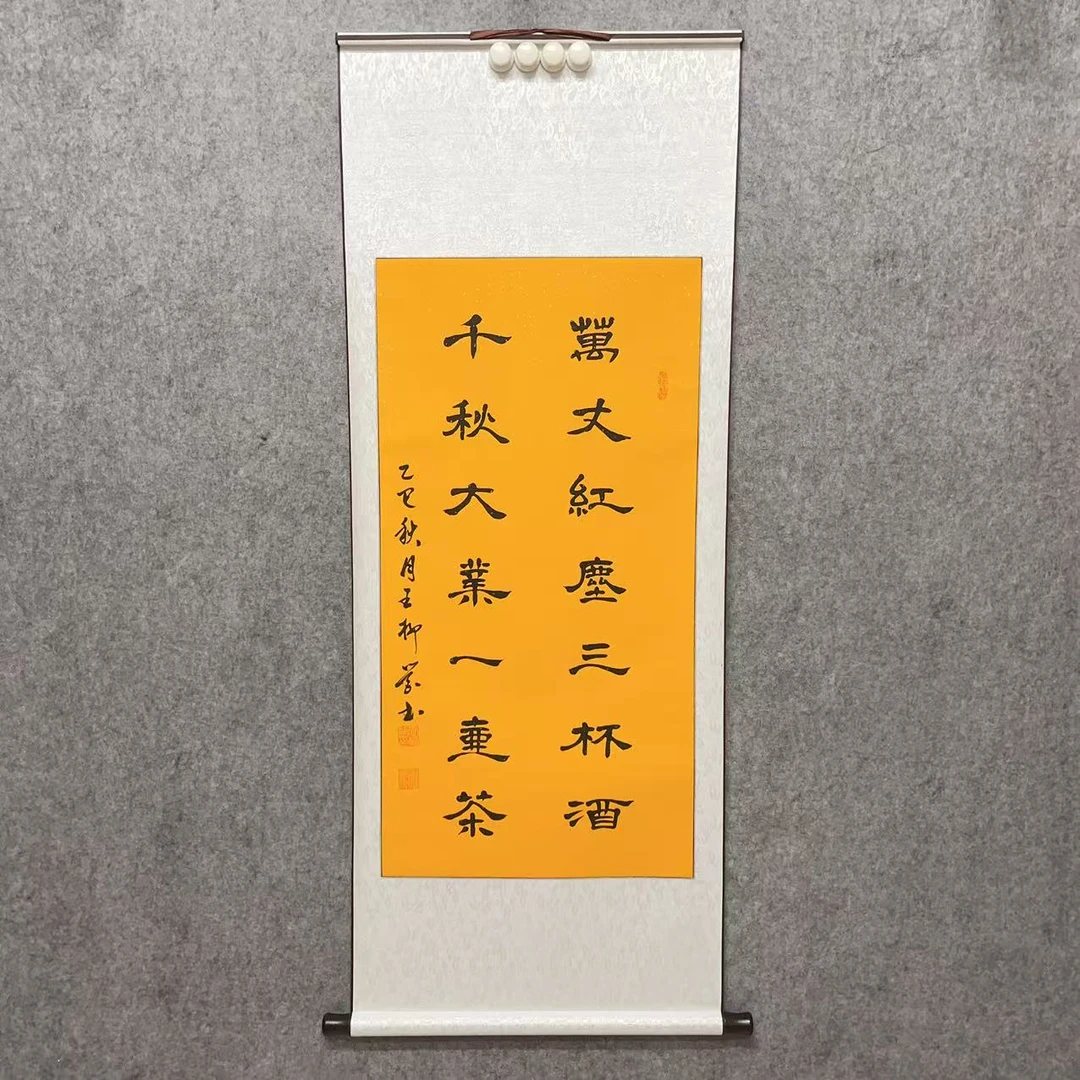 萬丈紅塵三杯酒
千秋大業一壷茶
乙巳秋月王柳營书